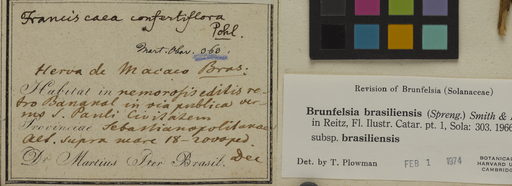 Franciscaea confertiflora
Pohl.
Mart. Obs. 060.
Herva de Macaco Bras.
Habitat in nemorosis editis re-
tro Bananal in via publica ver-
sus S. Pauli Civitatem
Provinciae Sebastianopolitanae
Alt. supra mare 18-2000 ped.
Dr Martius Iter Brasil. Dec
Revision of Brunfelsia (Solanaceae)
Brunfelsia brasiliensis (Spreng.) Smith &
in Reitz, Fl. Ilustr. Catar. pt. 1, Sola: 303. 1966
subsp. brasiliensis
Det. by T. Plowman FEB 1 1974
BOTANICA
HARVARD U
CAMBRID